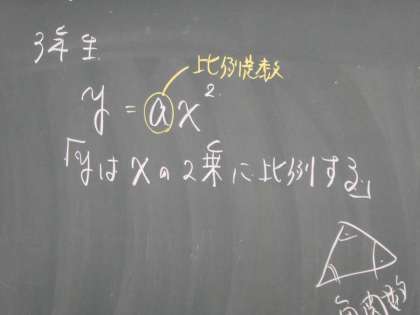 3年生
比例定数
y = ax²
「yはxの2乗に比例する」